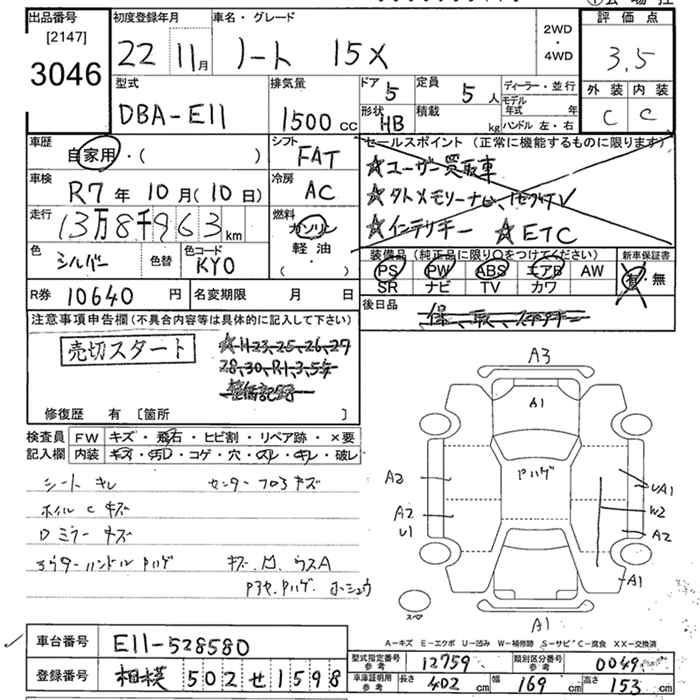 出品番号
[2147]
3046
初度登録年月
22 11月
車名・グレード
ノート 15X
2WD
・
4WD
評価点
3.5
外装 内装
C C
型式
DBA-E11
排気量
1500 cc
ドア 5
定員 5 人
形状 HB
積載 kg
ディーラー・並行
モデル年式 年
ハンドル 左・右
車歴
自家用・( )
シフト
FAT
セールスポイント (正常に機能するものに限ります)
☆ユーザー買取車
☆インテリキー ☆ETC
車検
R7 年 10 月 (10 日)
冷房
AC
走行
13万8千963 km
燃料
ガソリン
軽油・
( )
色
シルバー
色替
色コード
KY0
装備品 (純正品に限り○をつけてください)
PS PW ABS エアB AW
SR ナビ TV カワ
新車保証書
有・無
R券 10640 円
名変期限 月 日
後日品
注意事項申告欄(不具合内容等は具体的に記入して下さい)
売切スタート
☆H23、25、26、27
28、30、R1、3、5年
整備記録
修復歴 有 [箇所 ]
検査員記入欄
FW キズ・飛石・ヒビ割・リペア跡・×要
内装 キズ・汚レ・コゲ・穴・スレ・キレ・破レ
シート キレ
センターフロアキズ
ホイル C キズ
Dミラー キズ
A3
A1
Pハゲ
A2
UA1
W2
A2
U1
A2
A1
A1
スペア
A-キズ E-エクボ U-凹み W-補修跡 S-サビ C-腐食 XX-交換済
車台番号 E11-528580
登録番号 相模 502 せ 1598
型式指定番号 参考 12759
類別区分番号 参考 0049
車庫証明用 参考 長さ 402 cm 幅 169 cm 高さ 153 cm